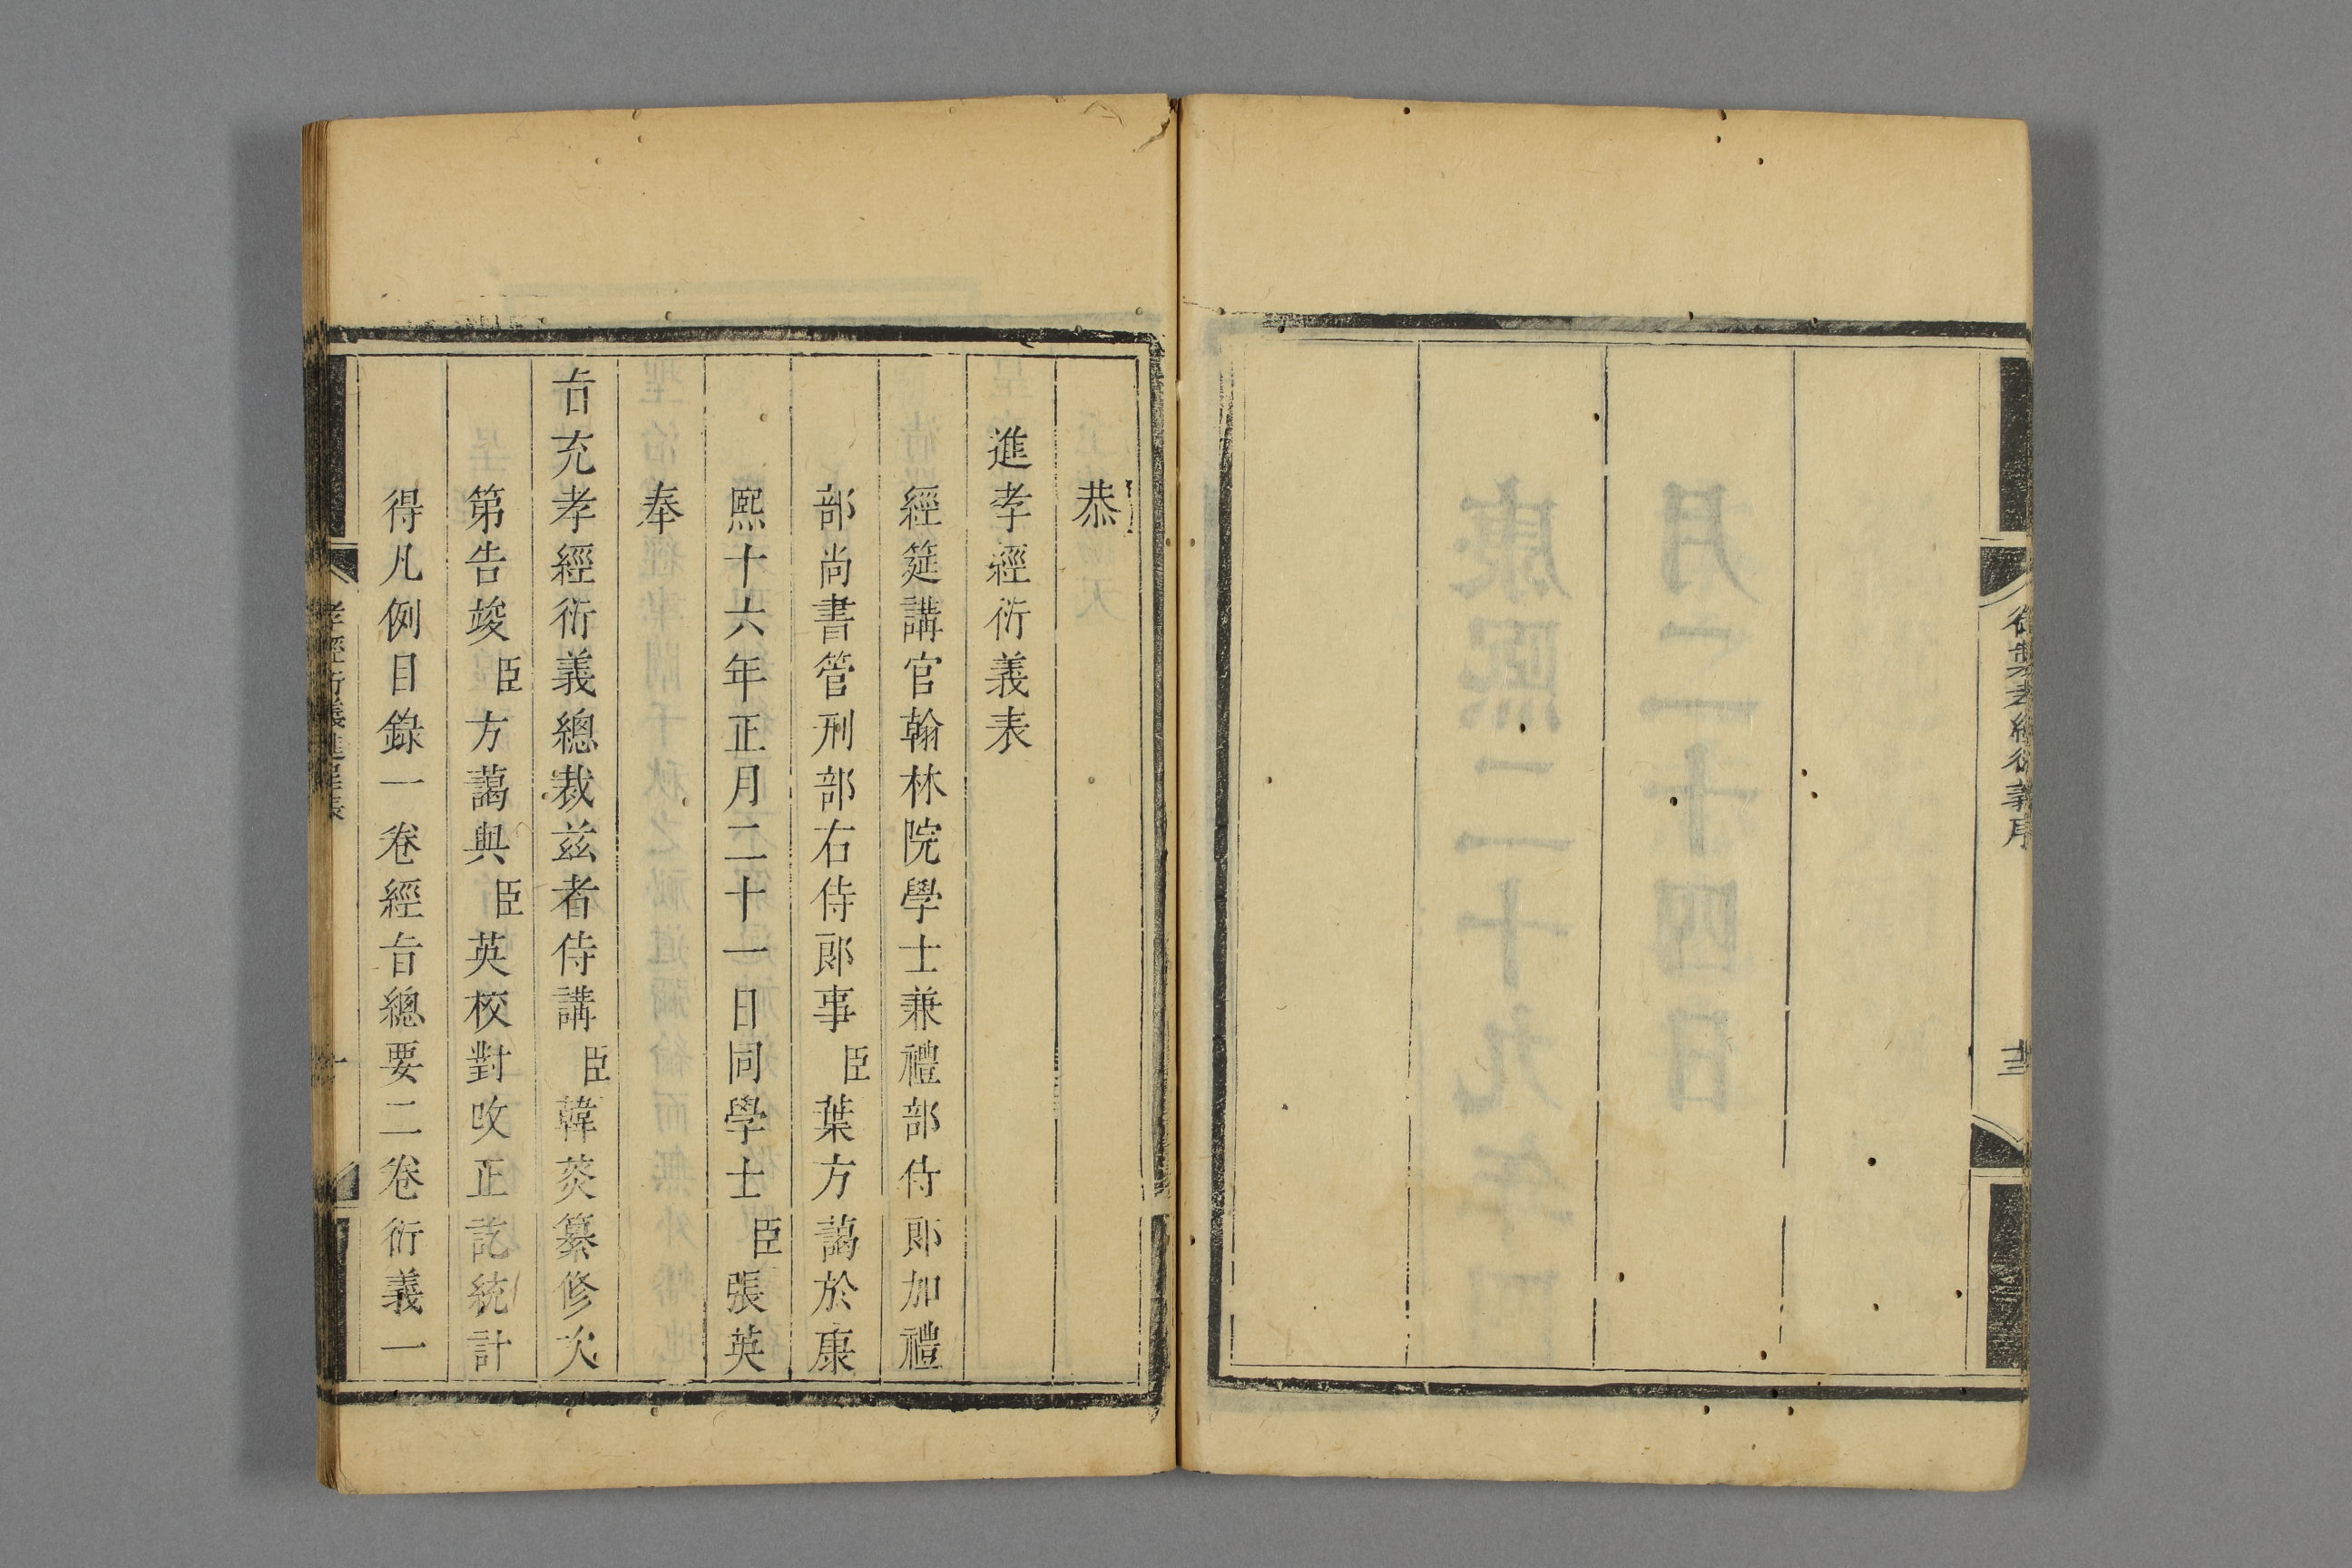 御製孝經衍義序
恭
進孝經衍義表
經筵講官翰林院學士兼禮部侍郎加禮
部尚書管刑部右侍郎事臣葉方藹於康
熙十六年正月二十一日同學士臣張英
奉
旨充孝經衍義總裁茲者侍講臣韓菼纂修次
第告竣臣方藹與臣英校對改正訖統計
得凡例目錄一卷經旨總要二卷衍義一
孝經衍義進呈表
一